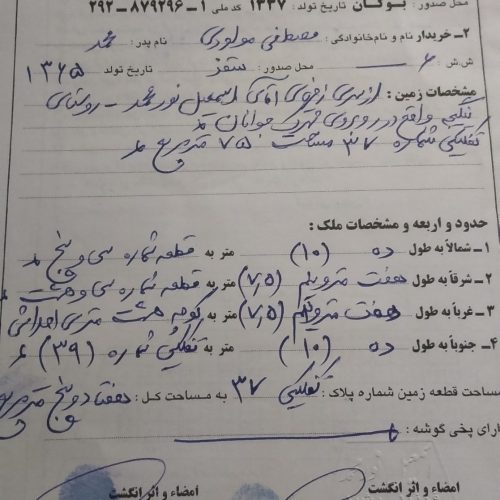 محل صدور: بوکان تاریخ تولد: ۱۳۳۷ کد ملی ۱-۸۷۹۲۹۶-۲۹۲
۲- خریدار نام و نام‌خانوادگی: مصطفی مولودی نام پدر: محمد
ش.ش: ۶ محل صدور: سقز تاریخ تولد ۱۳۶۵
مشخصات زمین: از سری اراضی آقای اسمعیل نورمحمد - روستای
واقع در روبروی شهرک جوانان
تفکیکی شماره ۳۷ مساحت ۷۵ مترمربع
حدود و اربعه و مشخصات ملک:
۱- شمالاً به طول ده (۱۰) متر به قطعه شماره سی و پنج
۲- شرقاً به طول هفت مترونیم (۷٫۵) متر به قطعه شماره سی و هشت
۳- غرباً به طول هفت مترونیم (۷٫۵) متر به کوچه هشت متری احداثی
۴- جنوباً به طول ده (۱۰) متر به تفکیکی شماره (۳۹)
مساحت قطعه زمین شماره پلاک: تفکیکی ۳۷ به مساحت کل: هفتاد و پنج مترمربع
دارای پخی گوشه:
امضاء و اثر انگشت امضاء و اثر انگشت